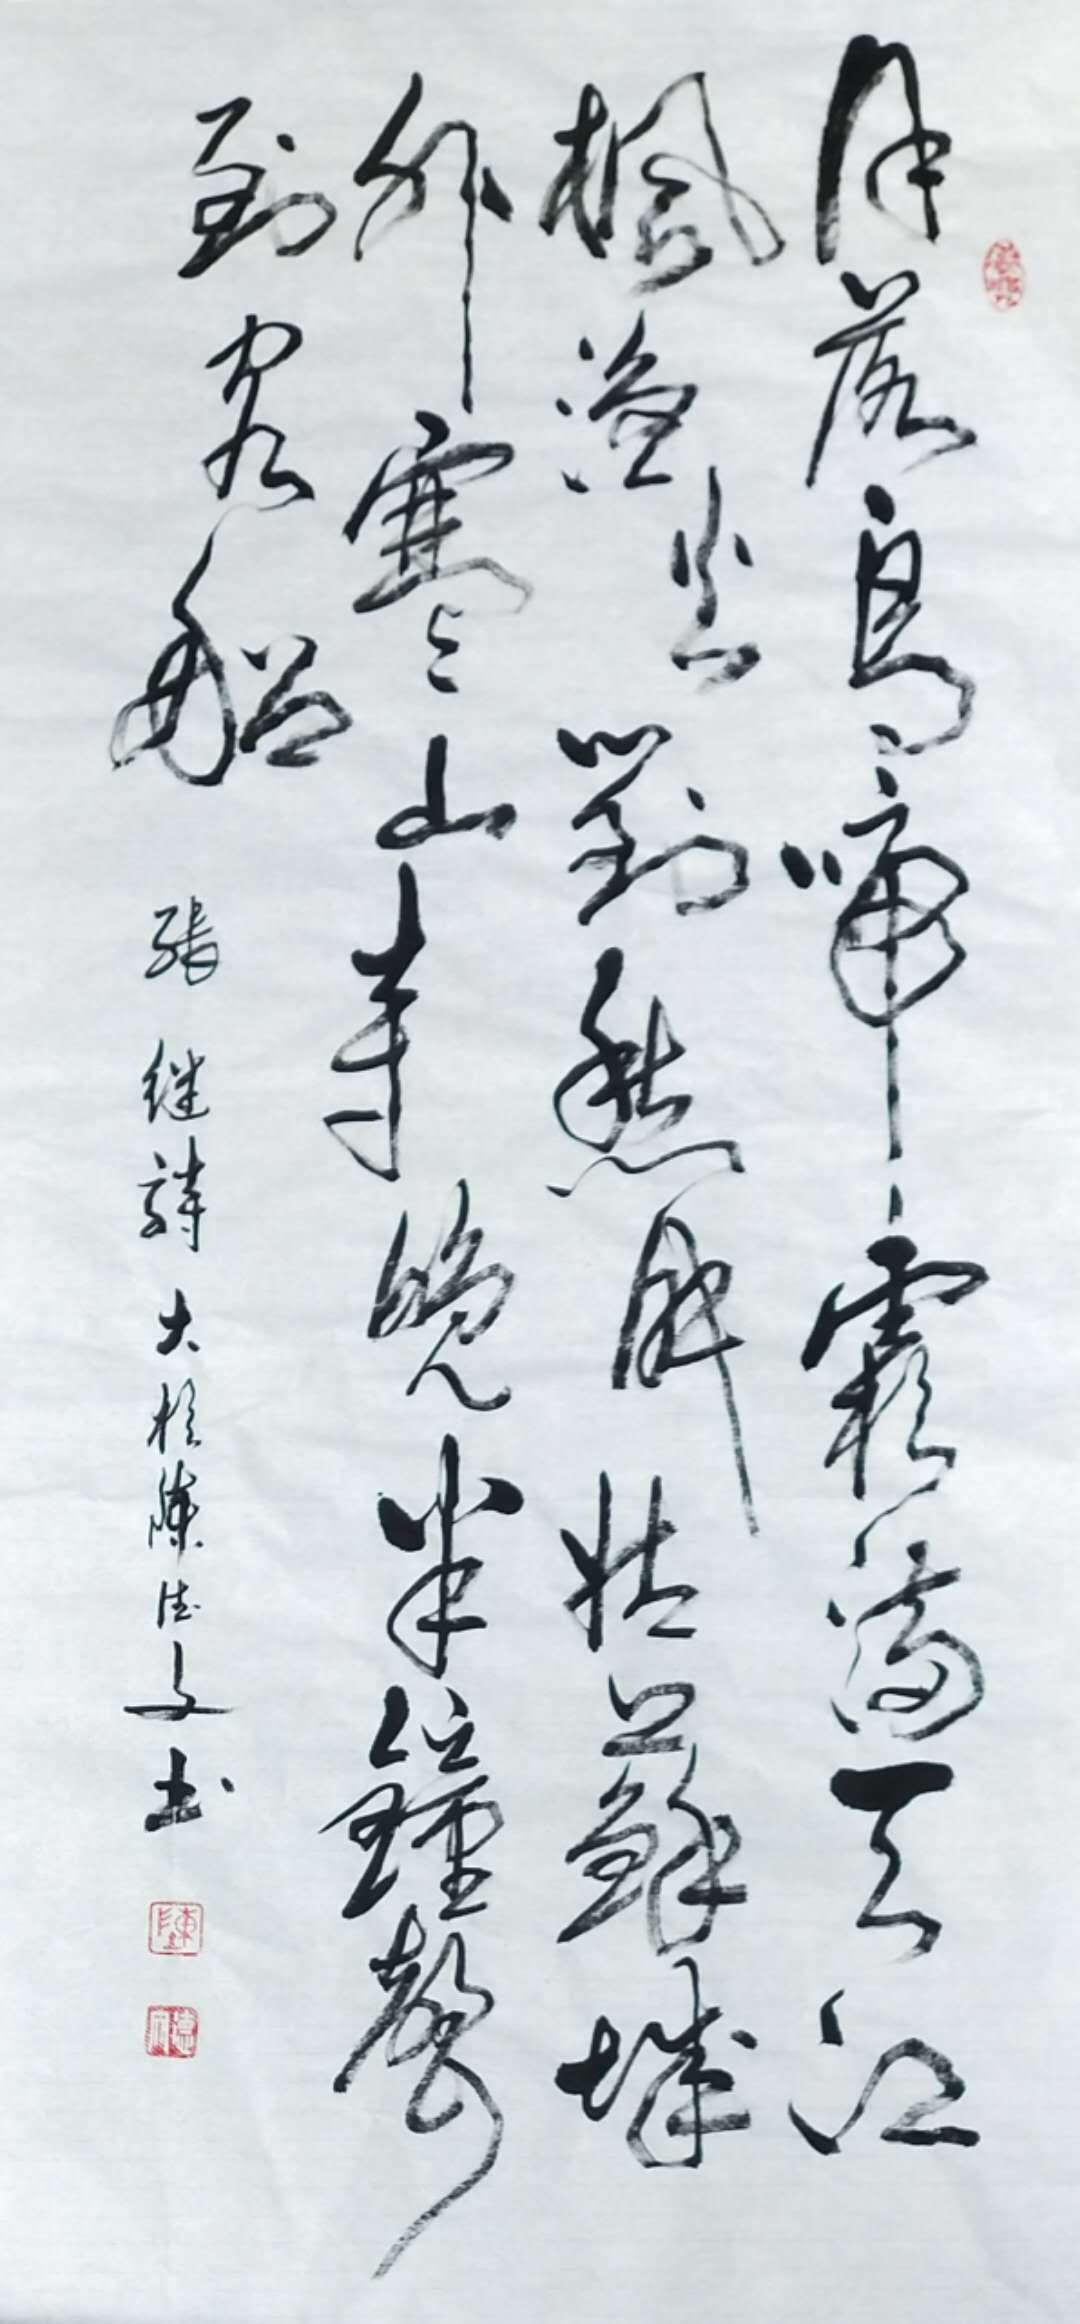 月落烏啼霜滿天江
楓漁火對愁眠姑蘇城
外寒山寺晚半鐘聲
到客船
張继詩 大陳德文书
陳